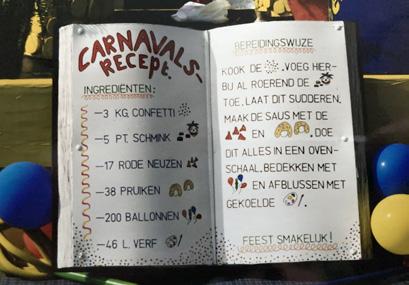 CARNAVALS-
RECEPT.
INGREDIËNTEN:
-3 KG CONFETTI
-5 PT. SCHMINK
-17 RODE NEUZEN
-38 PRUIKEN
-200 BALLONNEN
-46 L. VERF
BEREIDINGSWIJZE
KOOK DE , VOEG HIER-
BIJ AL ROEREND DE
TOE, LAAT DIT SUDDEREN.
MAAK DE SAUS MET DE
EN , DOE
DIT ALLES IN EEN OVEN-
SCHAAL, BEDEKKEN MET
EN AFBLUSSEN MET
GEKOELDE .
FEEST SMAKELIJK!